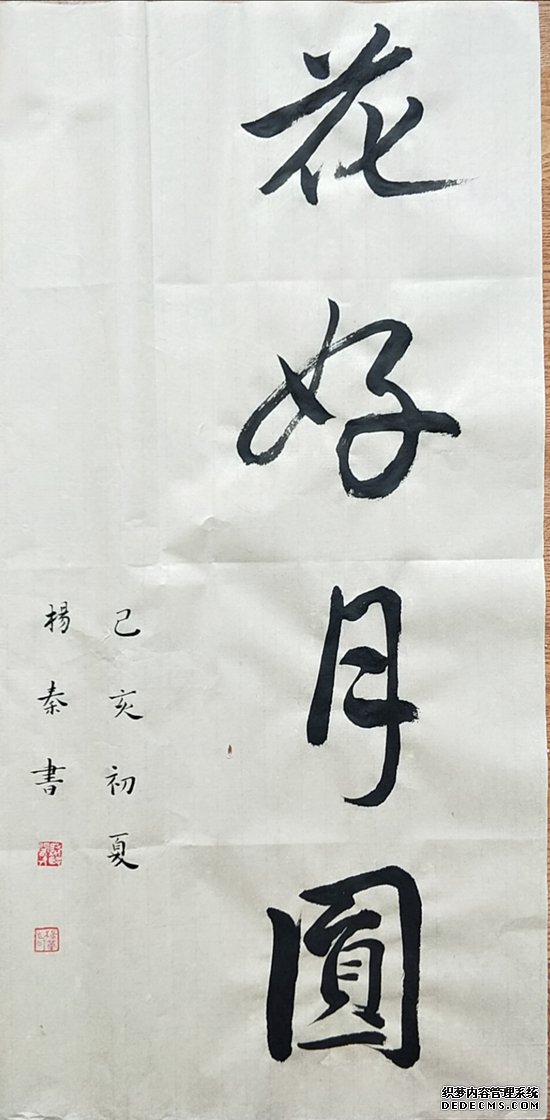 花好月圓
己亥初夏
楊秦書
织梦内容管理系统
DEDECMS.COM